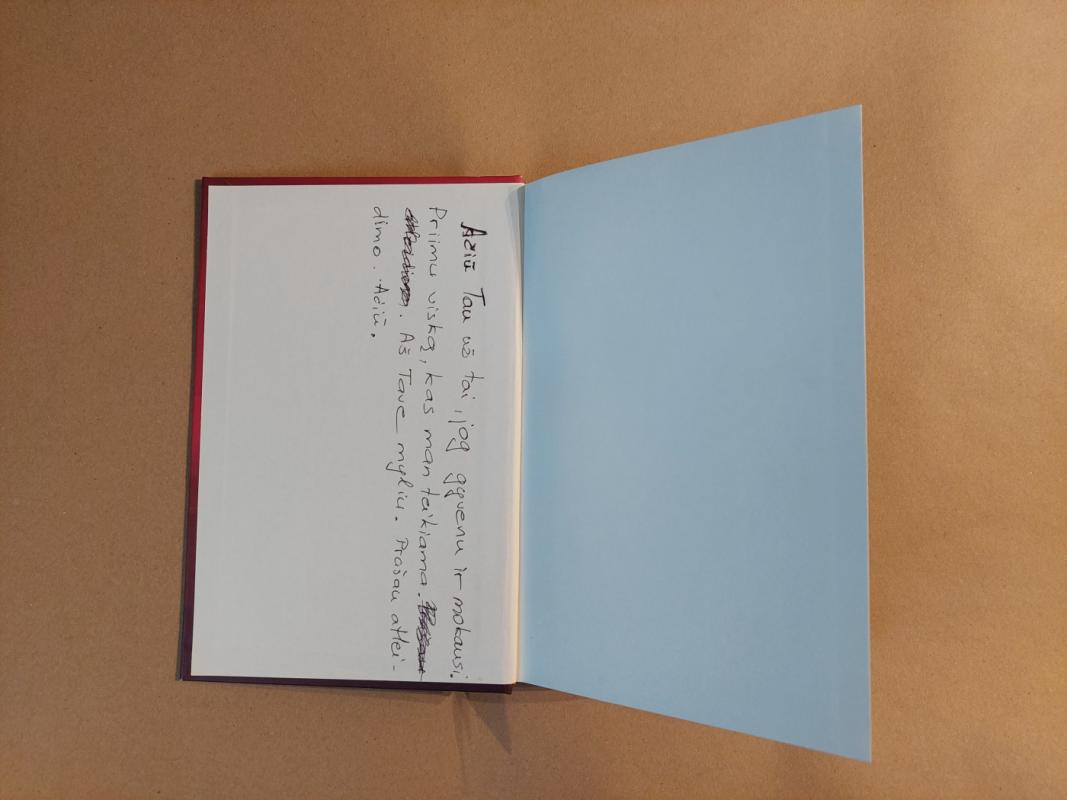 Ačiū Tau už tai, jog gyvenu ir mokausi.
Priimu viską, kas man teikiama.
. Aš Tave myliu. Prašau atlei-
dimo. Ačiū.